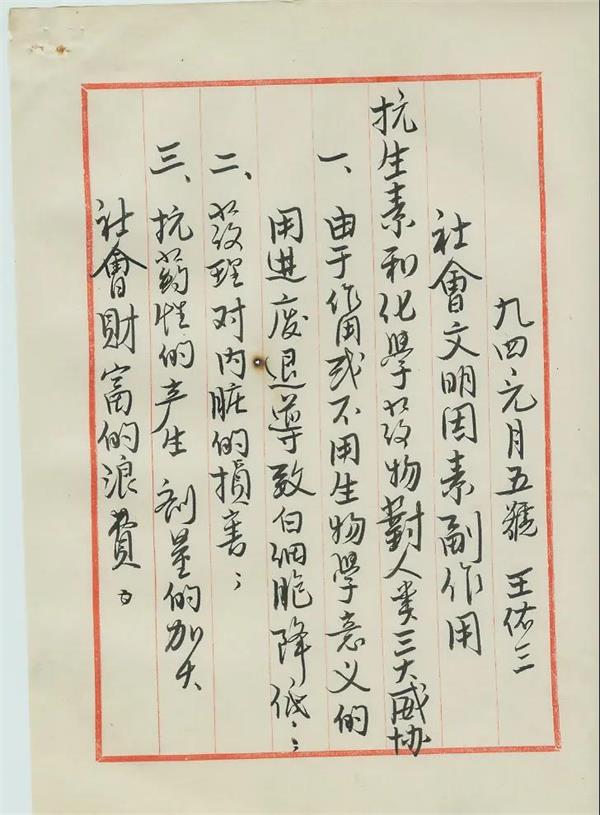 九四元月五號 王佑三
社會文明因素副作用
抗生素和化學药物對人类三大威协
一、由于作用或不用生物學意义的
用進废退導致白细胞降低；
二、药理对内脏的損害；
三、抗药性的产生 剂量的加大
社會財富的浪費。